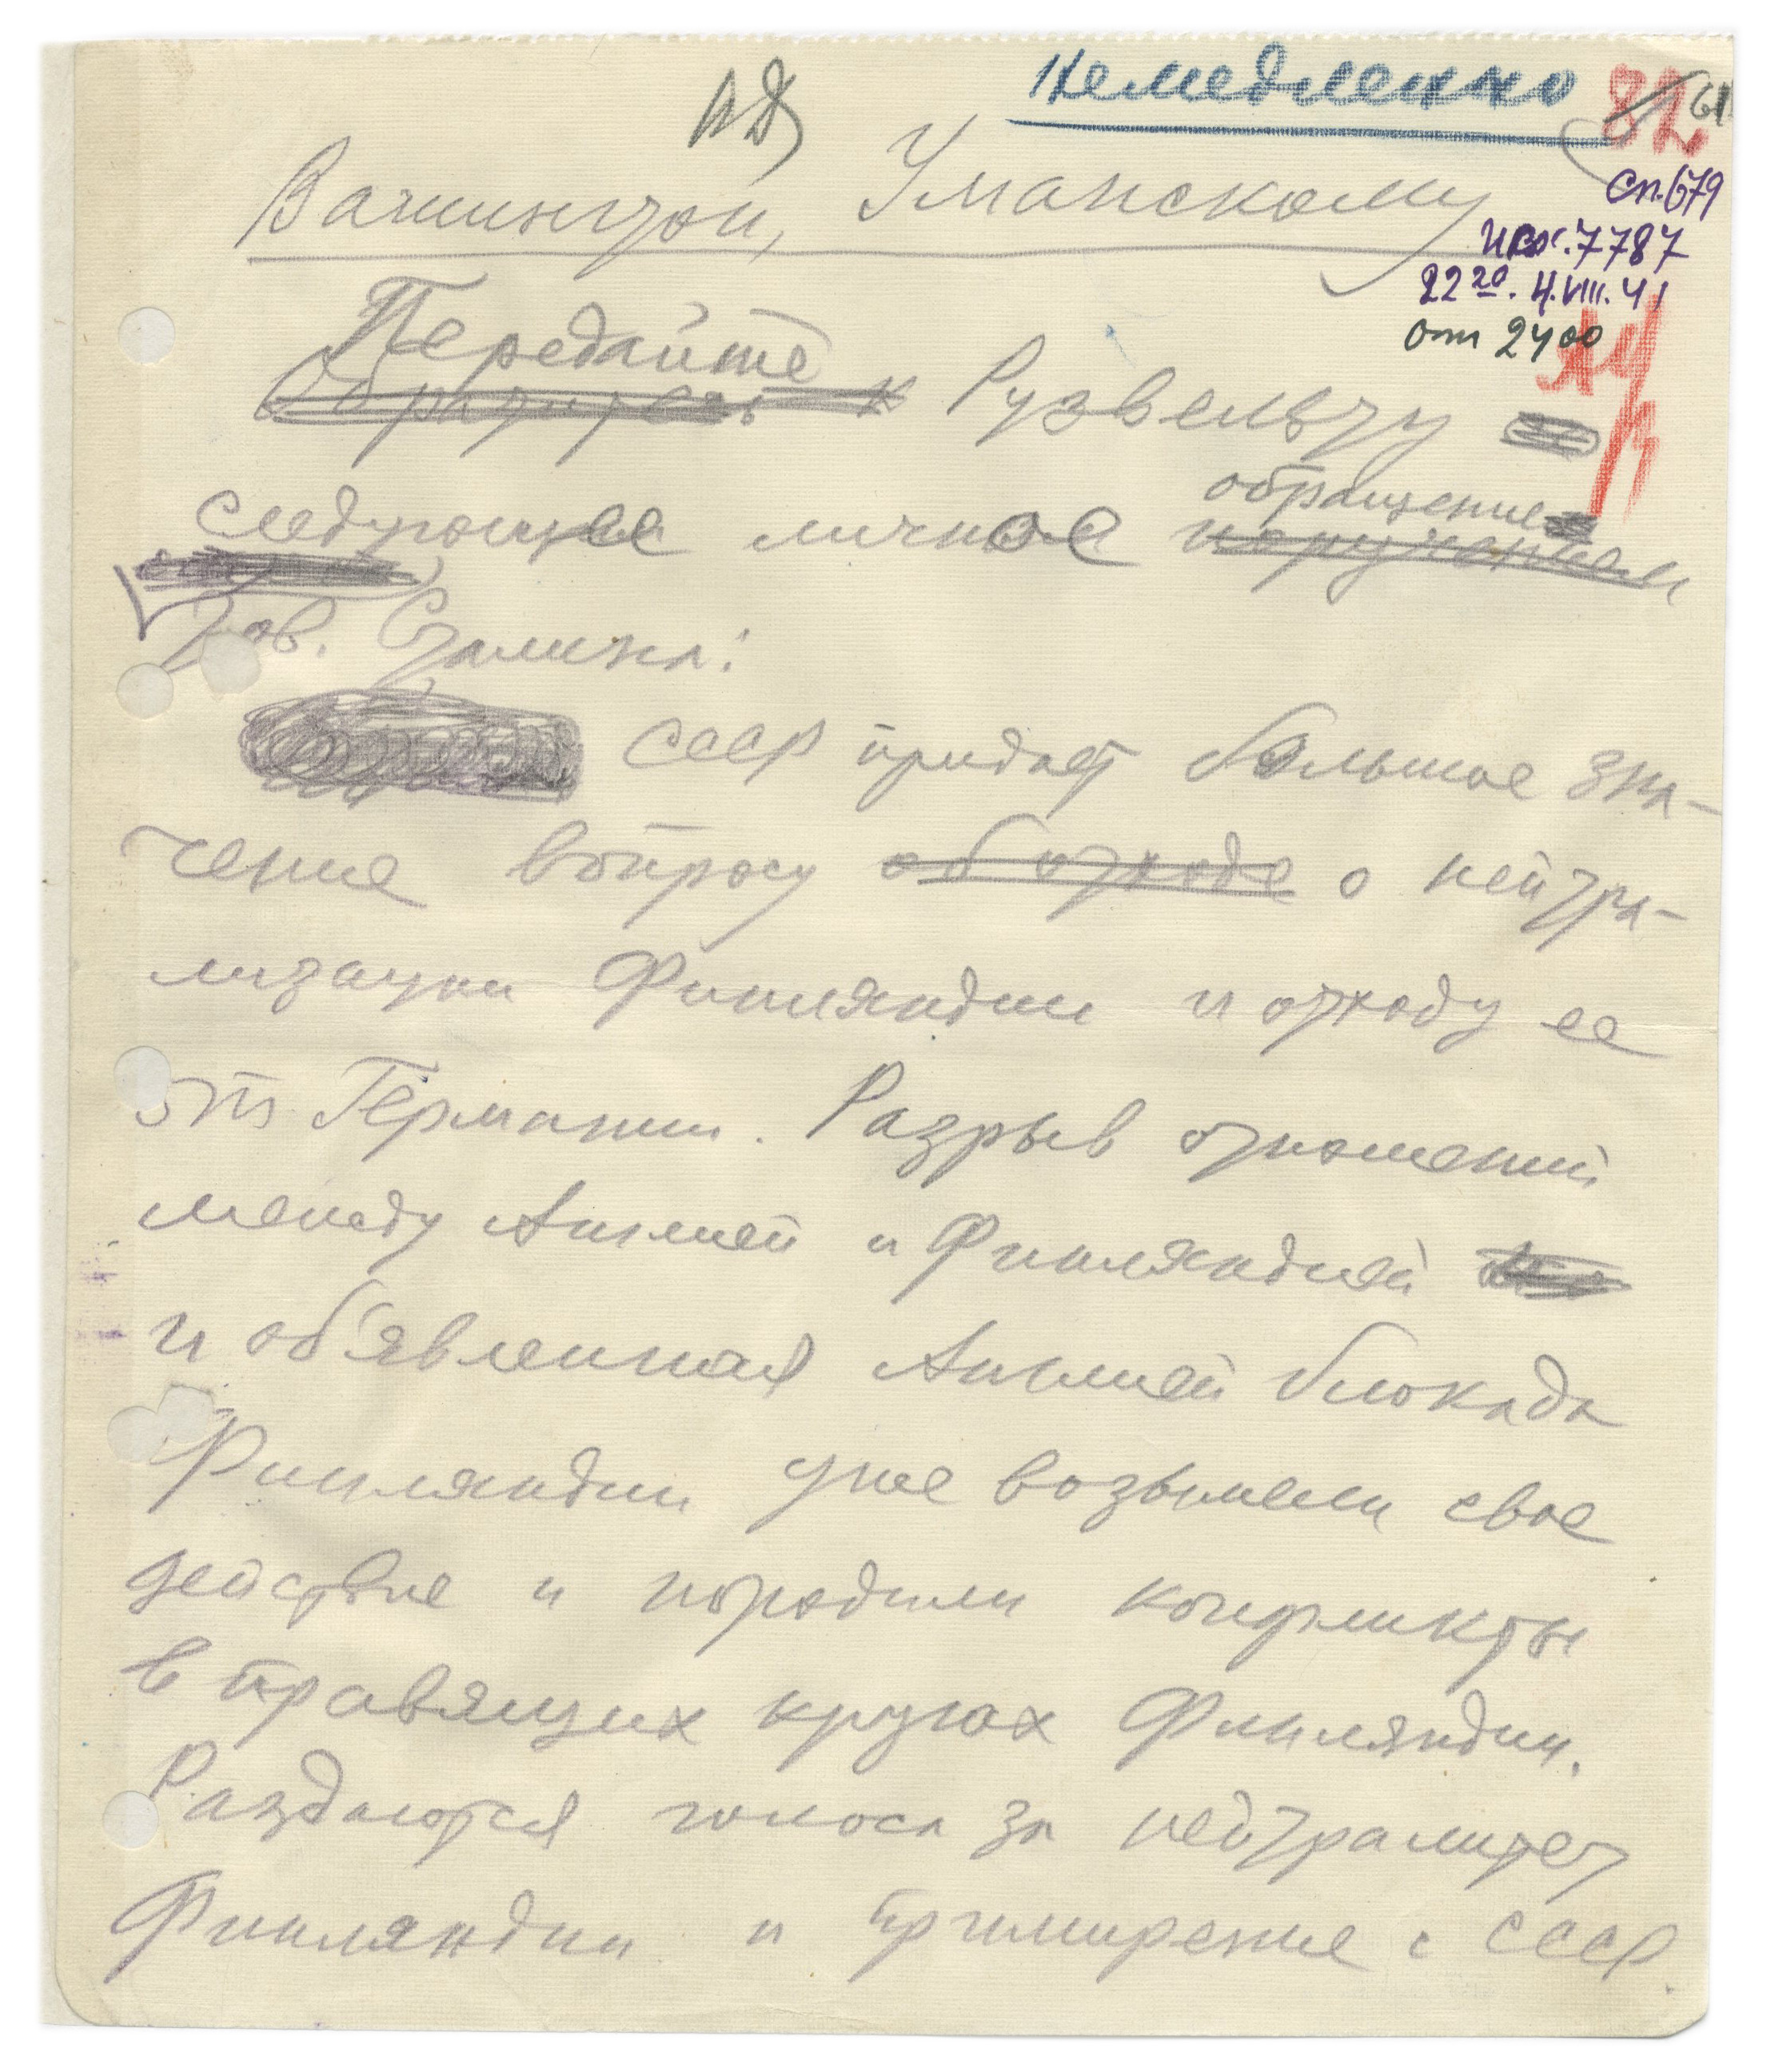 Немедленно
82
61
сп. 679
Вашингтон, Уманскому
исх. 7787
22 20. 4.VIII.41
от 2400
Передайте
Обратитесь к Рузвельту
обращение
следующее личное поручением
Тов. Сталина:
СССР придает большое зна-
чение вопросу об отходе о нейтра-
лизации Финляндии и отходу ее
от Германии. Разрыв отношений
между Англией и Финляндией
и об'явленная Англией блокада
Финляндии уже возымели свое
действие и породили конфликты
в правящих кругах Финляндии.
Раздаются голоса за нейтралитет
Финляндии и примирение с СССР.